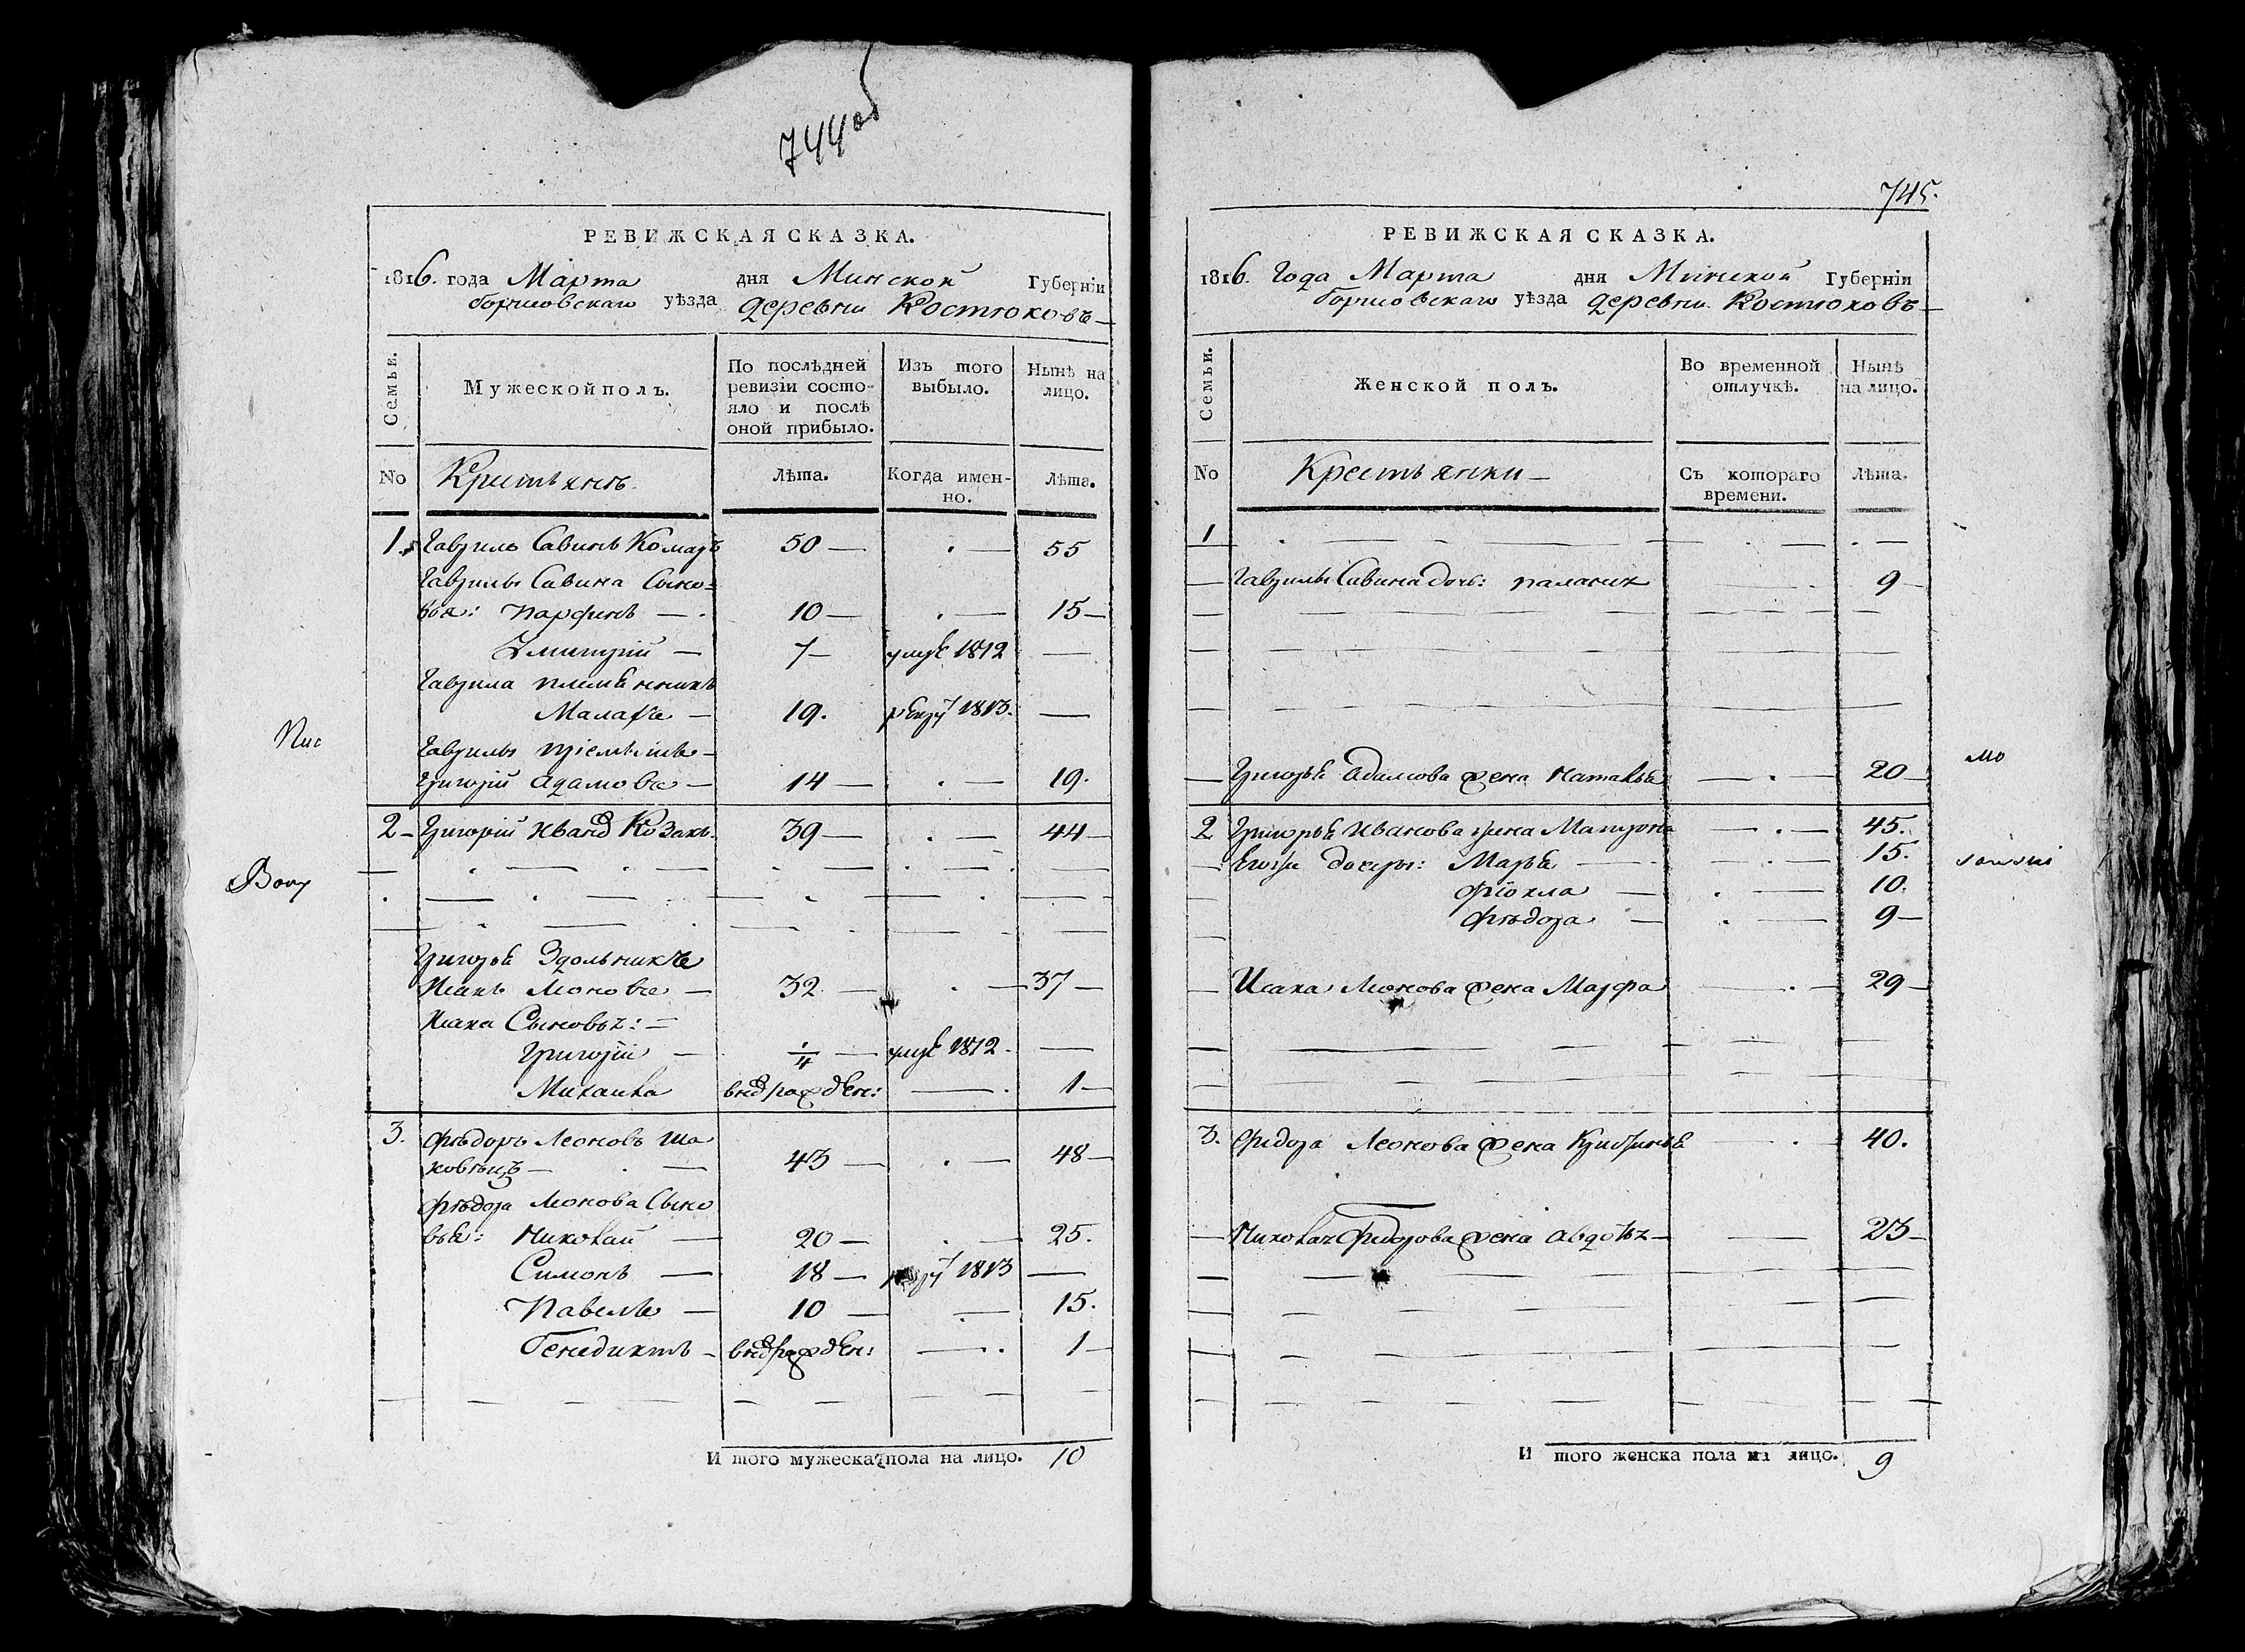 744 об
РЕВИЖСКАЯ СКАЗКА.
1816. года Марта дня Минской Губерніи
Борисовскаго уѣзда деревни Костюковъ
Семьи.
Мужеской полъ.
По послѣдней ревизіи состо-
яло и послѣ
оной прибыло.
Изъ того
выбыло.
Нынѣ на
лицо.
No
Лѣта.
Когда имен-
но.
Лѣта.
1. Гаврило Савинъ Комаръ 50 — . — 55
Гаврилы Савина Сыно-
вья: Парфинъ — 10 — . — 15 —
Дмитрій — 7 — умре 1812 —
Гаврила племѣнникъ
Малафе — 19. 1813. —
Гаврилы пріемышъ —
Григорій Адамовъ — 14 — . — 19.
2 — Григорій Иванов Козакъ. 39 — . — 44 —
Григорья Здольникъ
Исакъ Леоновъ — 32 — . — 37 —
Исака Сыновья: —
Григорій — 1/4 — умре 1812. —
Михаила вновьрожден: — 1 —
3. Фѣдоръ Леоновъ Ша
ковѣцъ — . — 43 — . — 48 —
Фѣдора Леонова Сыно
вья: Николай — 20 — . — 25.
Симонъ — 18 — 1813 —
Павелъ — 10 — . — 15.
Бенедиктъ — вновьрожден: — . 1 —
И того мужеска пола на лицо. 10
Пис
Вопу
745.
РЕВИЖСКАЯ СКАЗКА.
1816. Года Марта дня Минской Губерніи
Борисовскаго уѣзда деревни Костюковъ —
Семьи.
Женской полъ.
Во временной
отлучкѣ.
Нынѣ
на лицо.
No
Крестьянки —
Съ котораго
времени.
Лѣта.
1
— Гаврилы Савина дочь: Палагия 9 —
— Григорья Адамова жена Наталья — . — 20 —
2 Григорья Иванова жена Матрона — . — 45.
— Егожъ дочери: Марья — . — 15.
Фіокла — . — 10.
Фѣдора — . — 9 —
— Исака Леонова жена Марфа — . — 29 —
3. Фидора Леонова жена Кристинья . — 40.
— Николая Фидорова жена Авдотья — — 23 —
И того женска пола на лицо. 9
мо